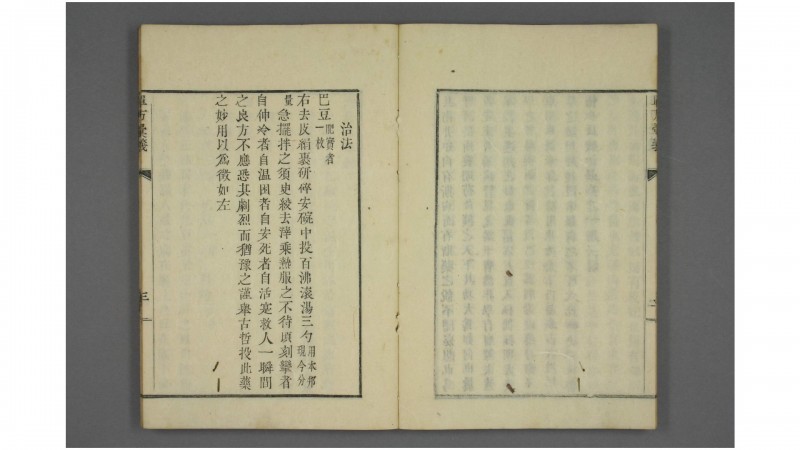 治法
巴豆肥實者一枚
右去皮絹裹研碎安碗中投百沸滚湯三勺用本邦現今分
量急擺拌之須臾絞去滓乘熱服之不待頃刻攣者
自伸冷者自溫困者自安死者自活寔救人一瞬間
之良方不應恐其劇烈而猶豫之謹舉古哲投此藥
之妙用以爲徵如左
三